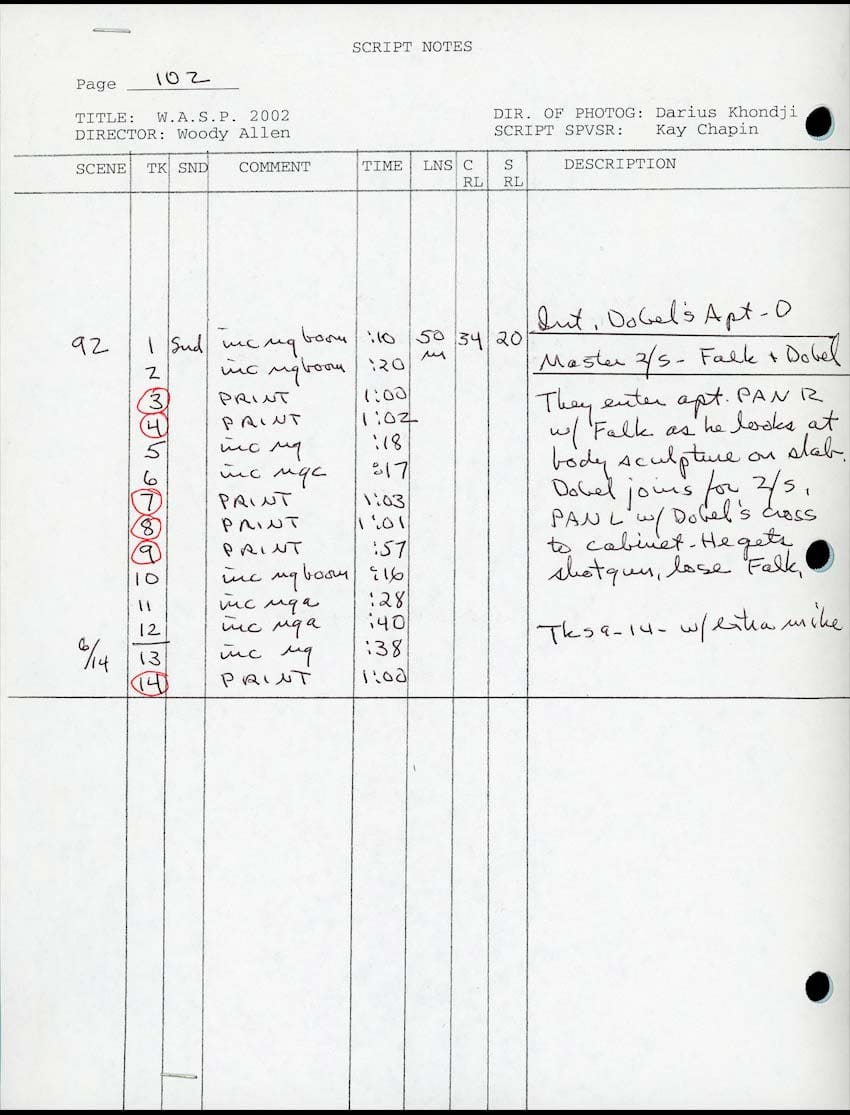 SCRIPT NOTES
Page 102
TITLE: W.A.S.P. 2002 DIR. OF PHOTOG: Darius Khondji
DIRECTOR: Woody Allen SCRIPT SPVSR: Kay Chapin
SCENE TK SND COMMENT TIME LNS C RL S RL DESCRIPTION
Int. Dobel's Apt - D
92 1 Snd inc ng boom :10 50 m 34 20
Master 2/S - Falk + Dobel
2 inc ng boom :20
3 PRINT 1:00 They enter apt. PAN R
4 PRINT 1:02 w/ Falk as he looks at
5 inc ng :18 body sculpture on slab.
6 inc ngc :17 Dobel joins for 2/S,
7 PRINT 1:03
8 PRINT 1:01 PAN L w/ Dobel's cross
9 PRINT :57 to cabinet - He gets
10 inc ng boom :16 shotgun, lose Falk,
11 inc nga :28
12 inc nga :40 Tks 9-14 - w/ extra mike
6/14 13 inc ng :38
14 PRINT 1:00